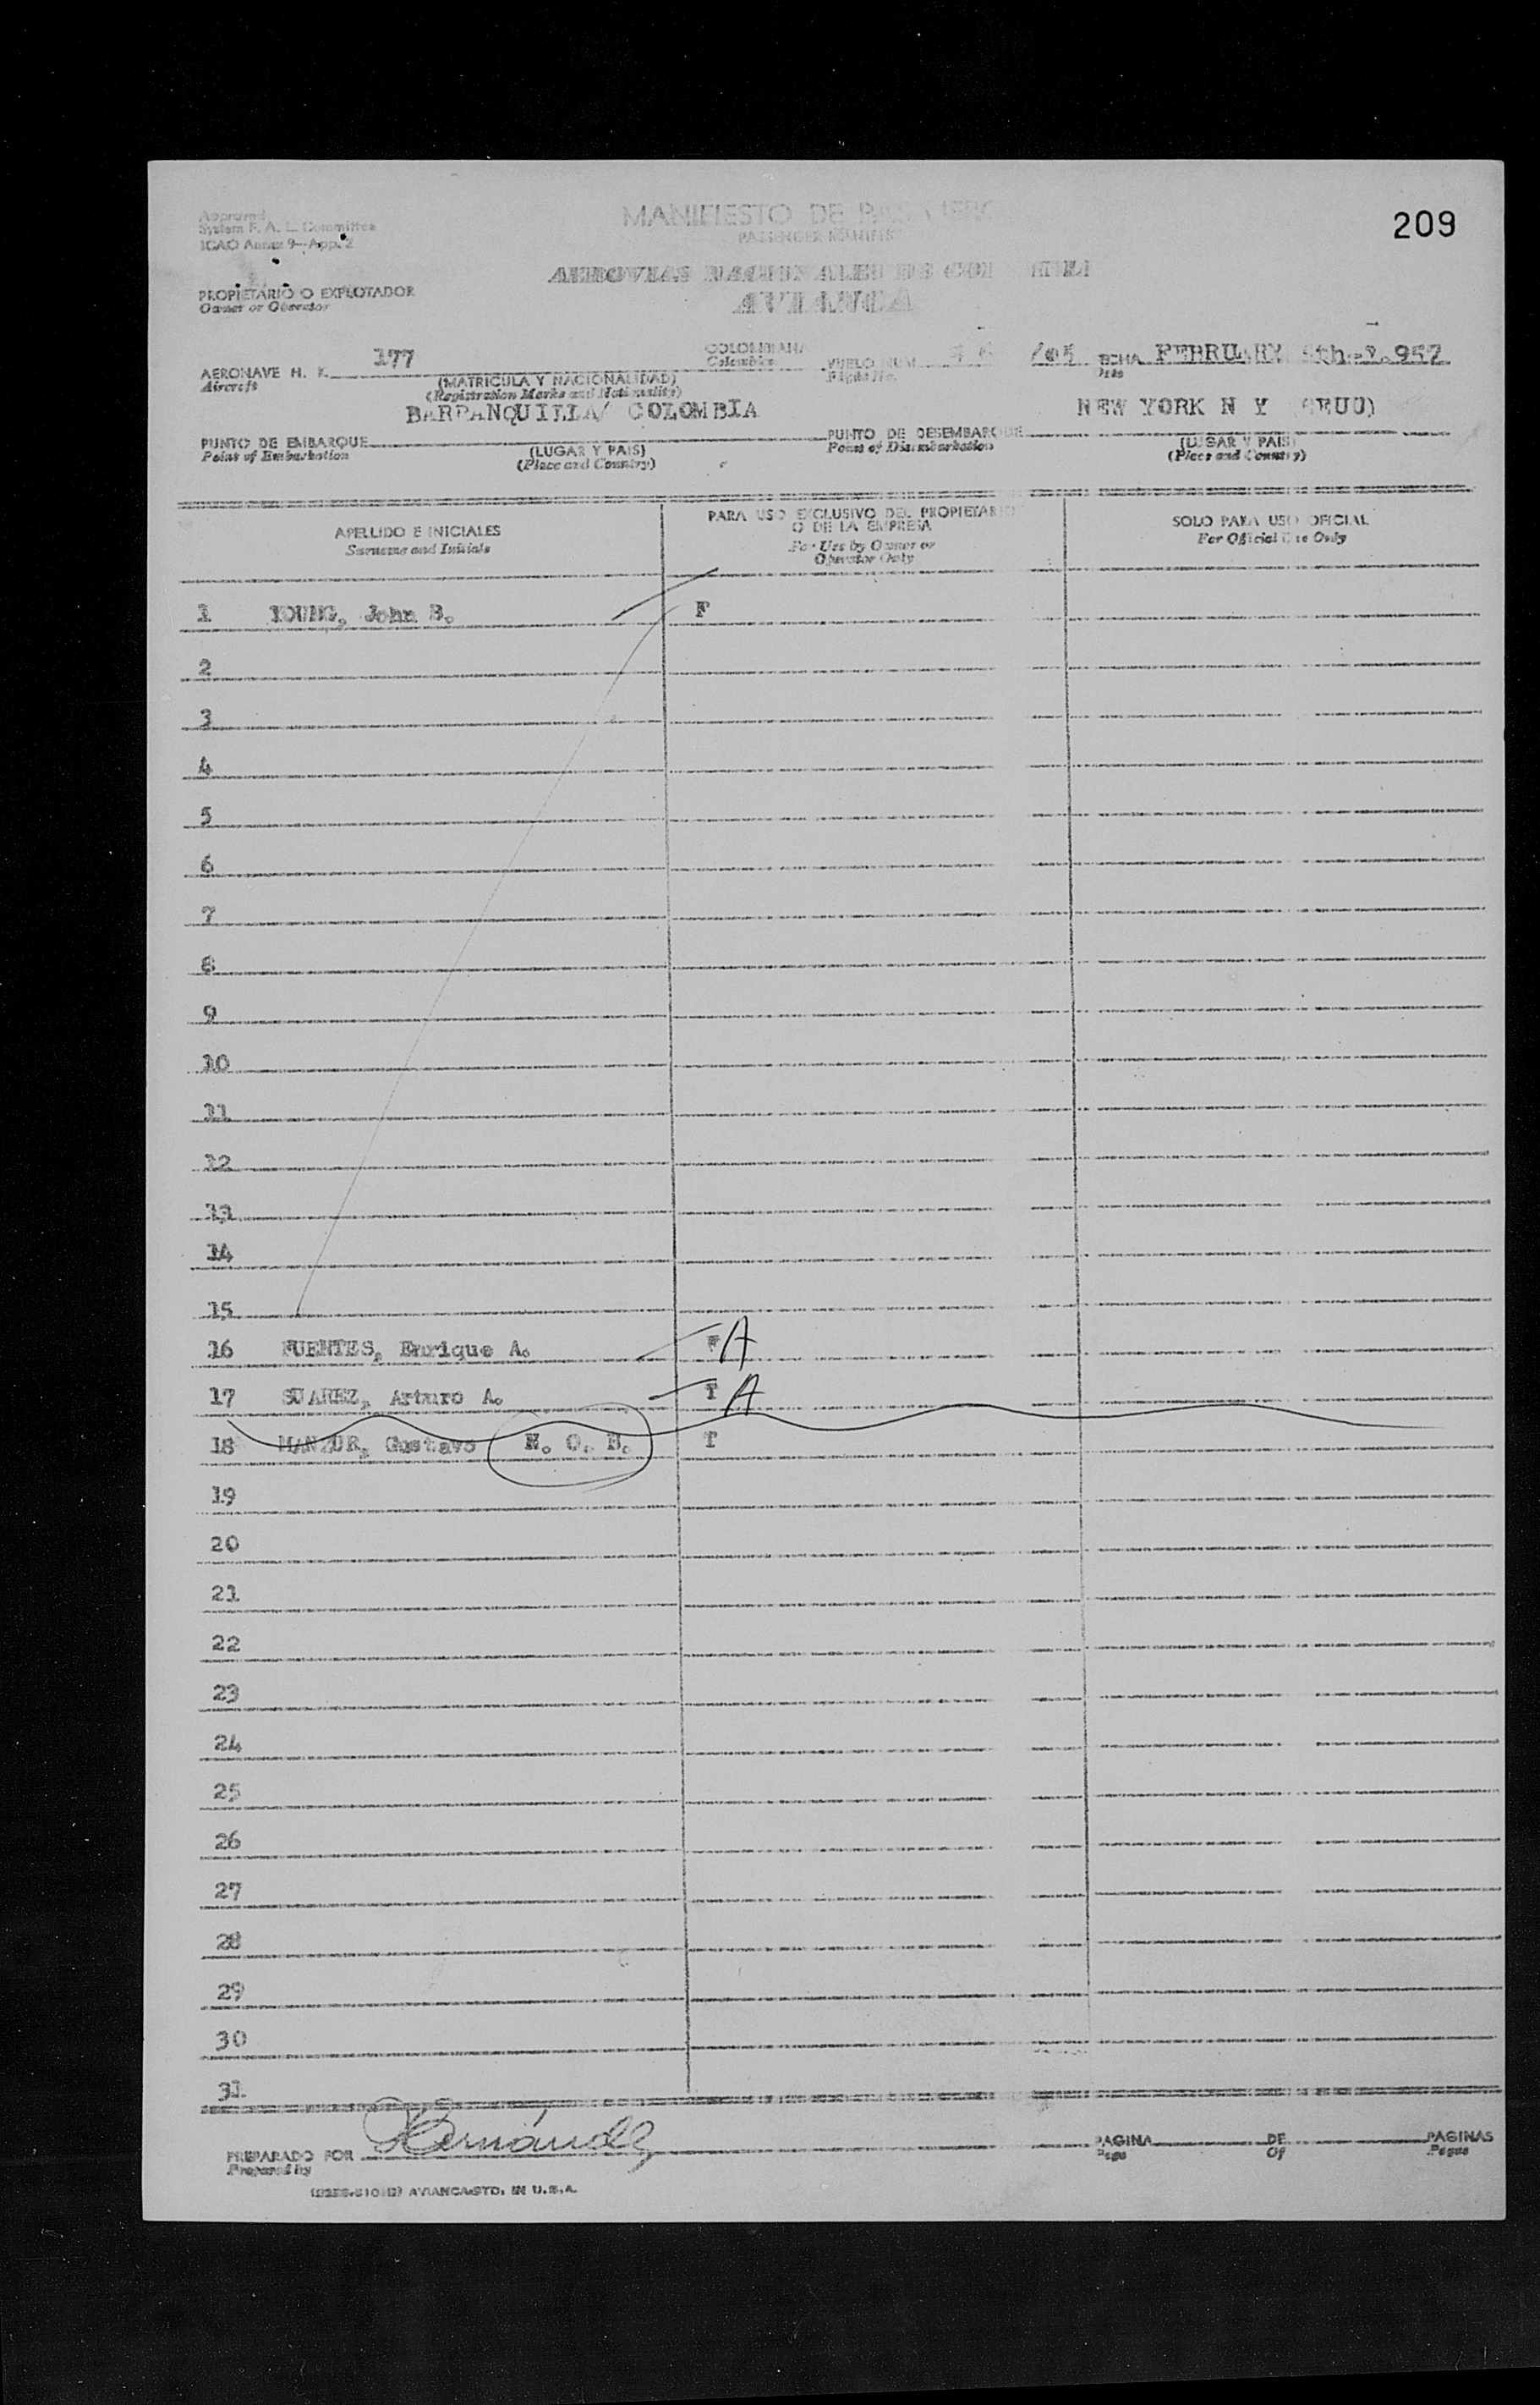 209
Approved
System F. A. L. Committee
ICAO Annex 9-App. 2
MANIFIESTO DE
PASSENGER MANIFEST
AEROVIAS NACIONALES DE COLOMBIA
AVIANCA
PROPIETARIO O EXPLOTADOR
Owner or Operator
AERONAVE H. K. 177 COLOMBIANA VUELO NUM. /05 FECHA FEBRUARY
Aircraft Colombian Flight No. Date
(MATRICULA Y NACIONALIDAD)
(Registration Marks and Nationality)
BARRANQUILLA/ COLOMBIA NEW YORK N Y (EEUU)
PUNTO DE EMBARQUE PUNTO DE DESEMBARQUE
Point of Embarkation (LUGAR Y PAIS) Point of Disembarkation (LUGAR Y PAIS)
(Place and Country) (Place and Country)
APELLIDO E INICIALES PARA USO EXCLUSIVO DEL PROPIETARIO SOLO PARA USO OFICIAL
Surname and Initials O DE LA EMPRESA For Official Use Only
For Use by Owner or
Operator Only
1 YOUNG, John B. F
2
3
4
5
6
7
8
9
10
11
12
13
14
15
16 FUENTES, Enrique A. A
17 SUAREZ, Arturo A. T A
18 MANZUR, Gustavo N. O. B. T
19
20
21
22
23
24
25
26
27
28
29
30
31
PREPARADO POR PAGINA DE PAGINAS
Prepared by Page Of Pages
AVIANCA-STD. IN U.S.A.